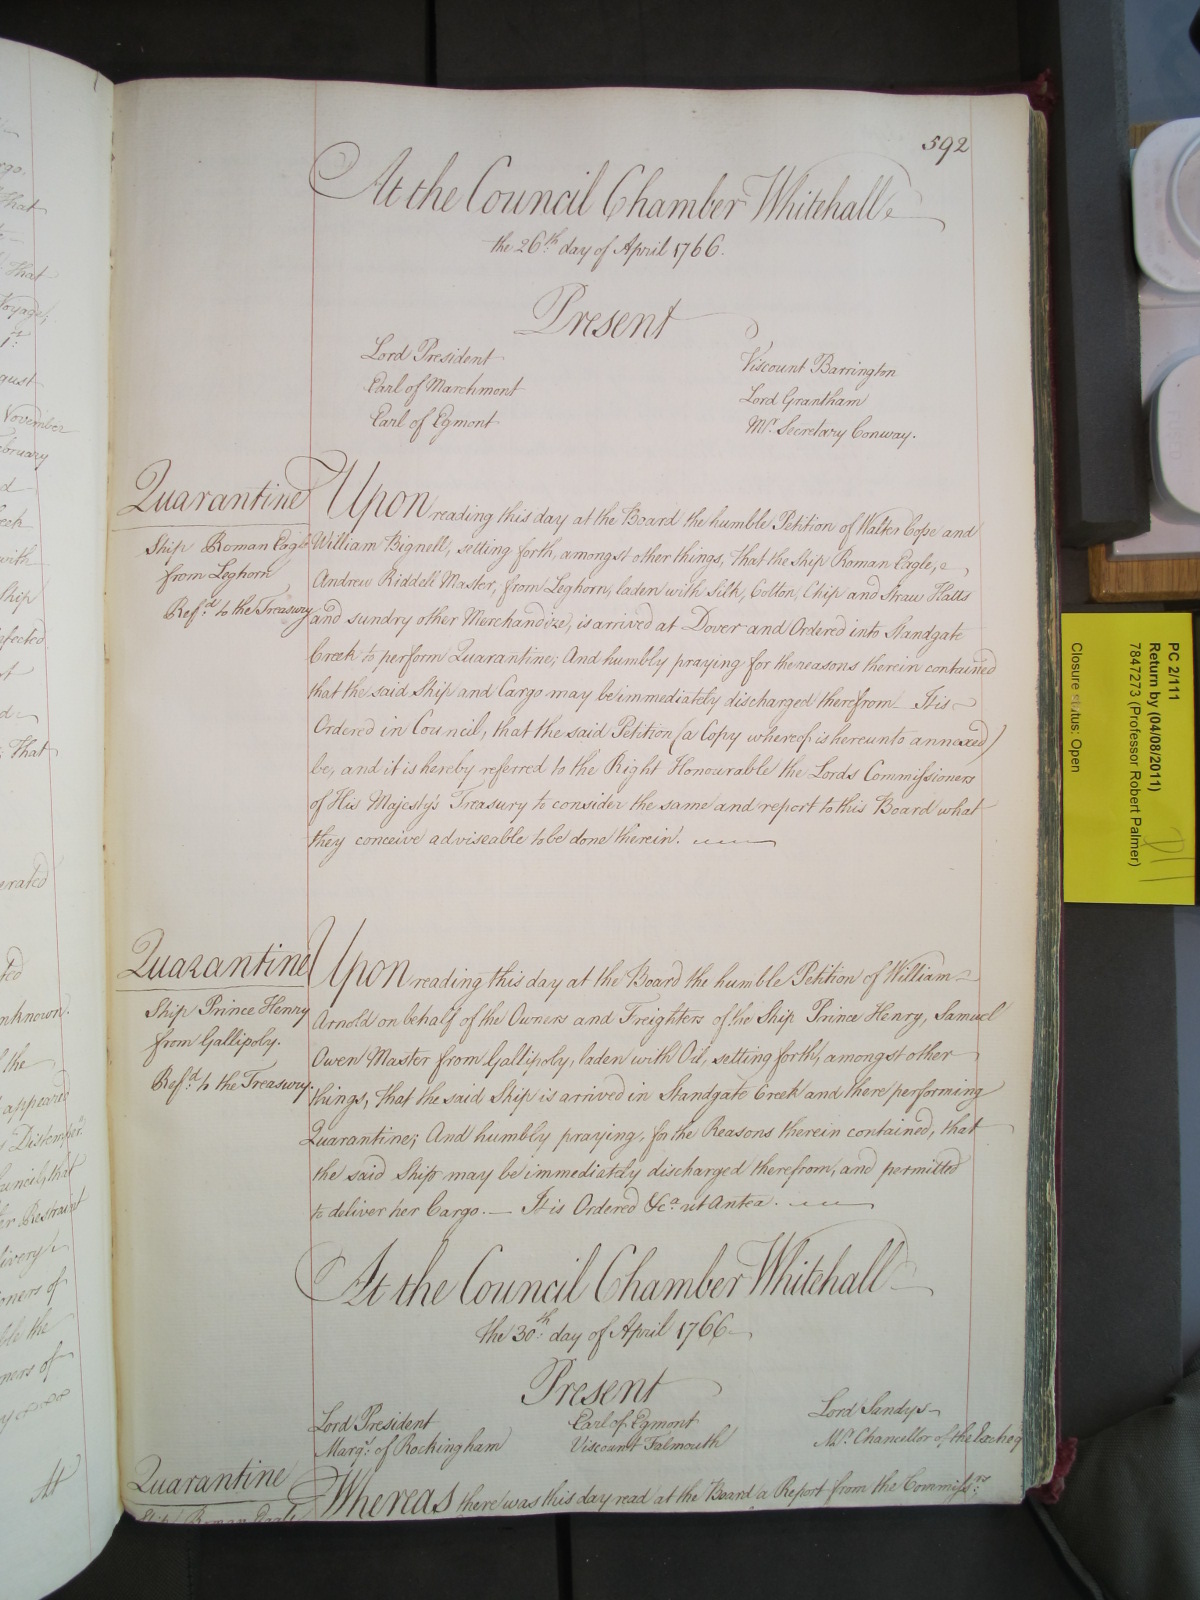 592
At the Council Chamber Whitehall
the 26th day of April 1766.
Present
Lord President
Earl of Marchmont
Earl of Egmont
Viscount Barrington
Lord Grantham
Mr. Secretary Conway.
Quarantine
Ship Roman Eagle
from Leghorn
Refd. to the Treasury
Upon reading this day at the Board the humble Petition of Walter Cope and
William Bignell, setting forth, amongst other things, that the Ship Roman Eagle,
Andrew Riddell Master, from Leghorn, laden with Silk, Cotton, Chip and Straw Hatts
and sundry other Merchandize, is arrived at Dover and Ordered into Standgate
Creek to perform Quarantine; And humbly praying for the reasons therein contained
that the said Ship and Cargo may be immediately discharged therefrom It is
Ordered in Council, that the said Petition (a Copy whereof is hereunto annexed)
be, and it is hereby referred to the Right Honourable the Lords Commissioners
of His Majesty's Treasury to consider the same and report to this Board what
they conceive adviseable to be done therein.
Quarantine
Ship Prince Henry
from Gallipoly.
Refd. to the Treasury.
Upon reading this day at the Board the humble Petition of William
Arnold on behalf of the Owners and Freighters of the Ship Prince Henry, Samuel
Owen Master from Gallipoly, laden with Oil, setting forth, amongst other
things, that the said Ship is arrived in Standgate Creek and there performing
Quarantine; And humbly praying, for the Reasons therein contained, that
the said Ship may be immediately discharged therefrom, and permitted
to deliver her Cargo. — It is Ordered &ca. ut Antea.
At the Council Chamber Whitehall
the 30th. day of April 1766
Present
Lord President
Marqs. of Rockingham
Earl of Egmont
Viscount Falmouth
Lord Sandys
Mr. Chancellor of the Excheqr
Quarantine
Ship Roman Eagle
Whereas there was this day read at the Board a Report from the Commissrs.
PC 2/111
Return by (04/08/2011)
7847273 (Professor Robert Palmer)
Closure status: Open